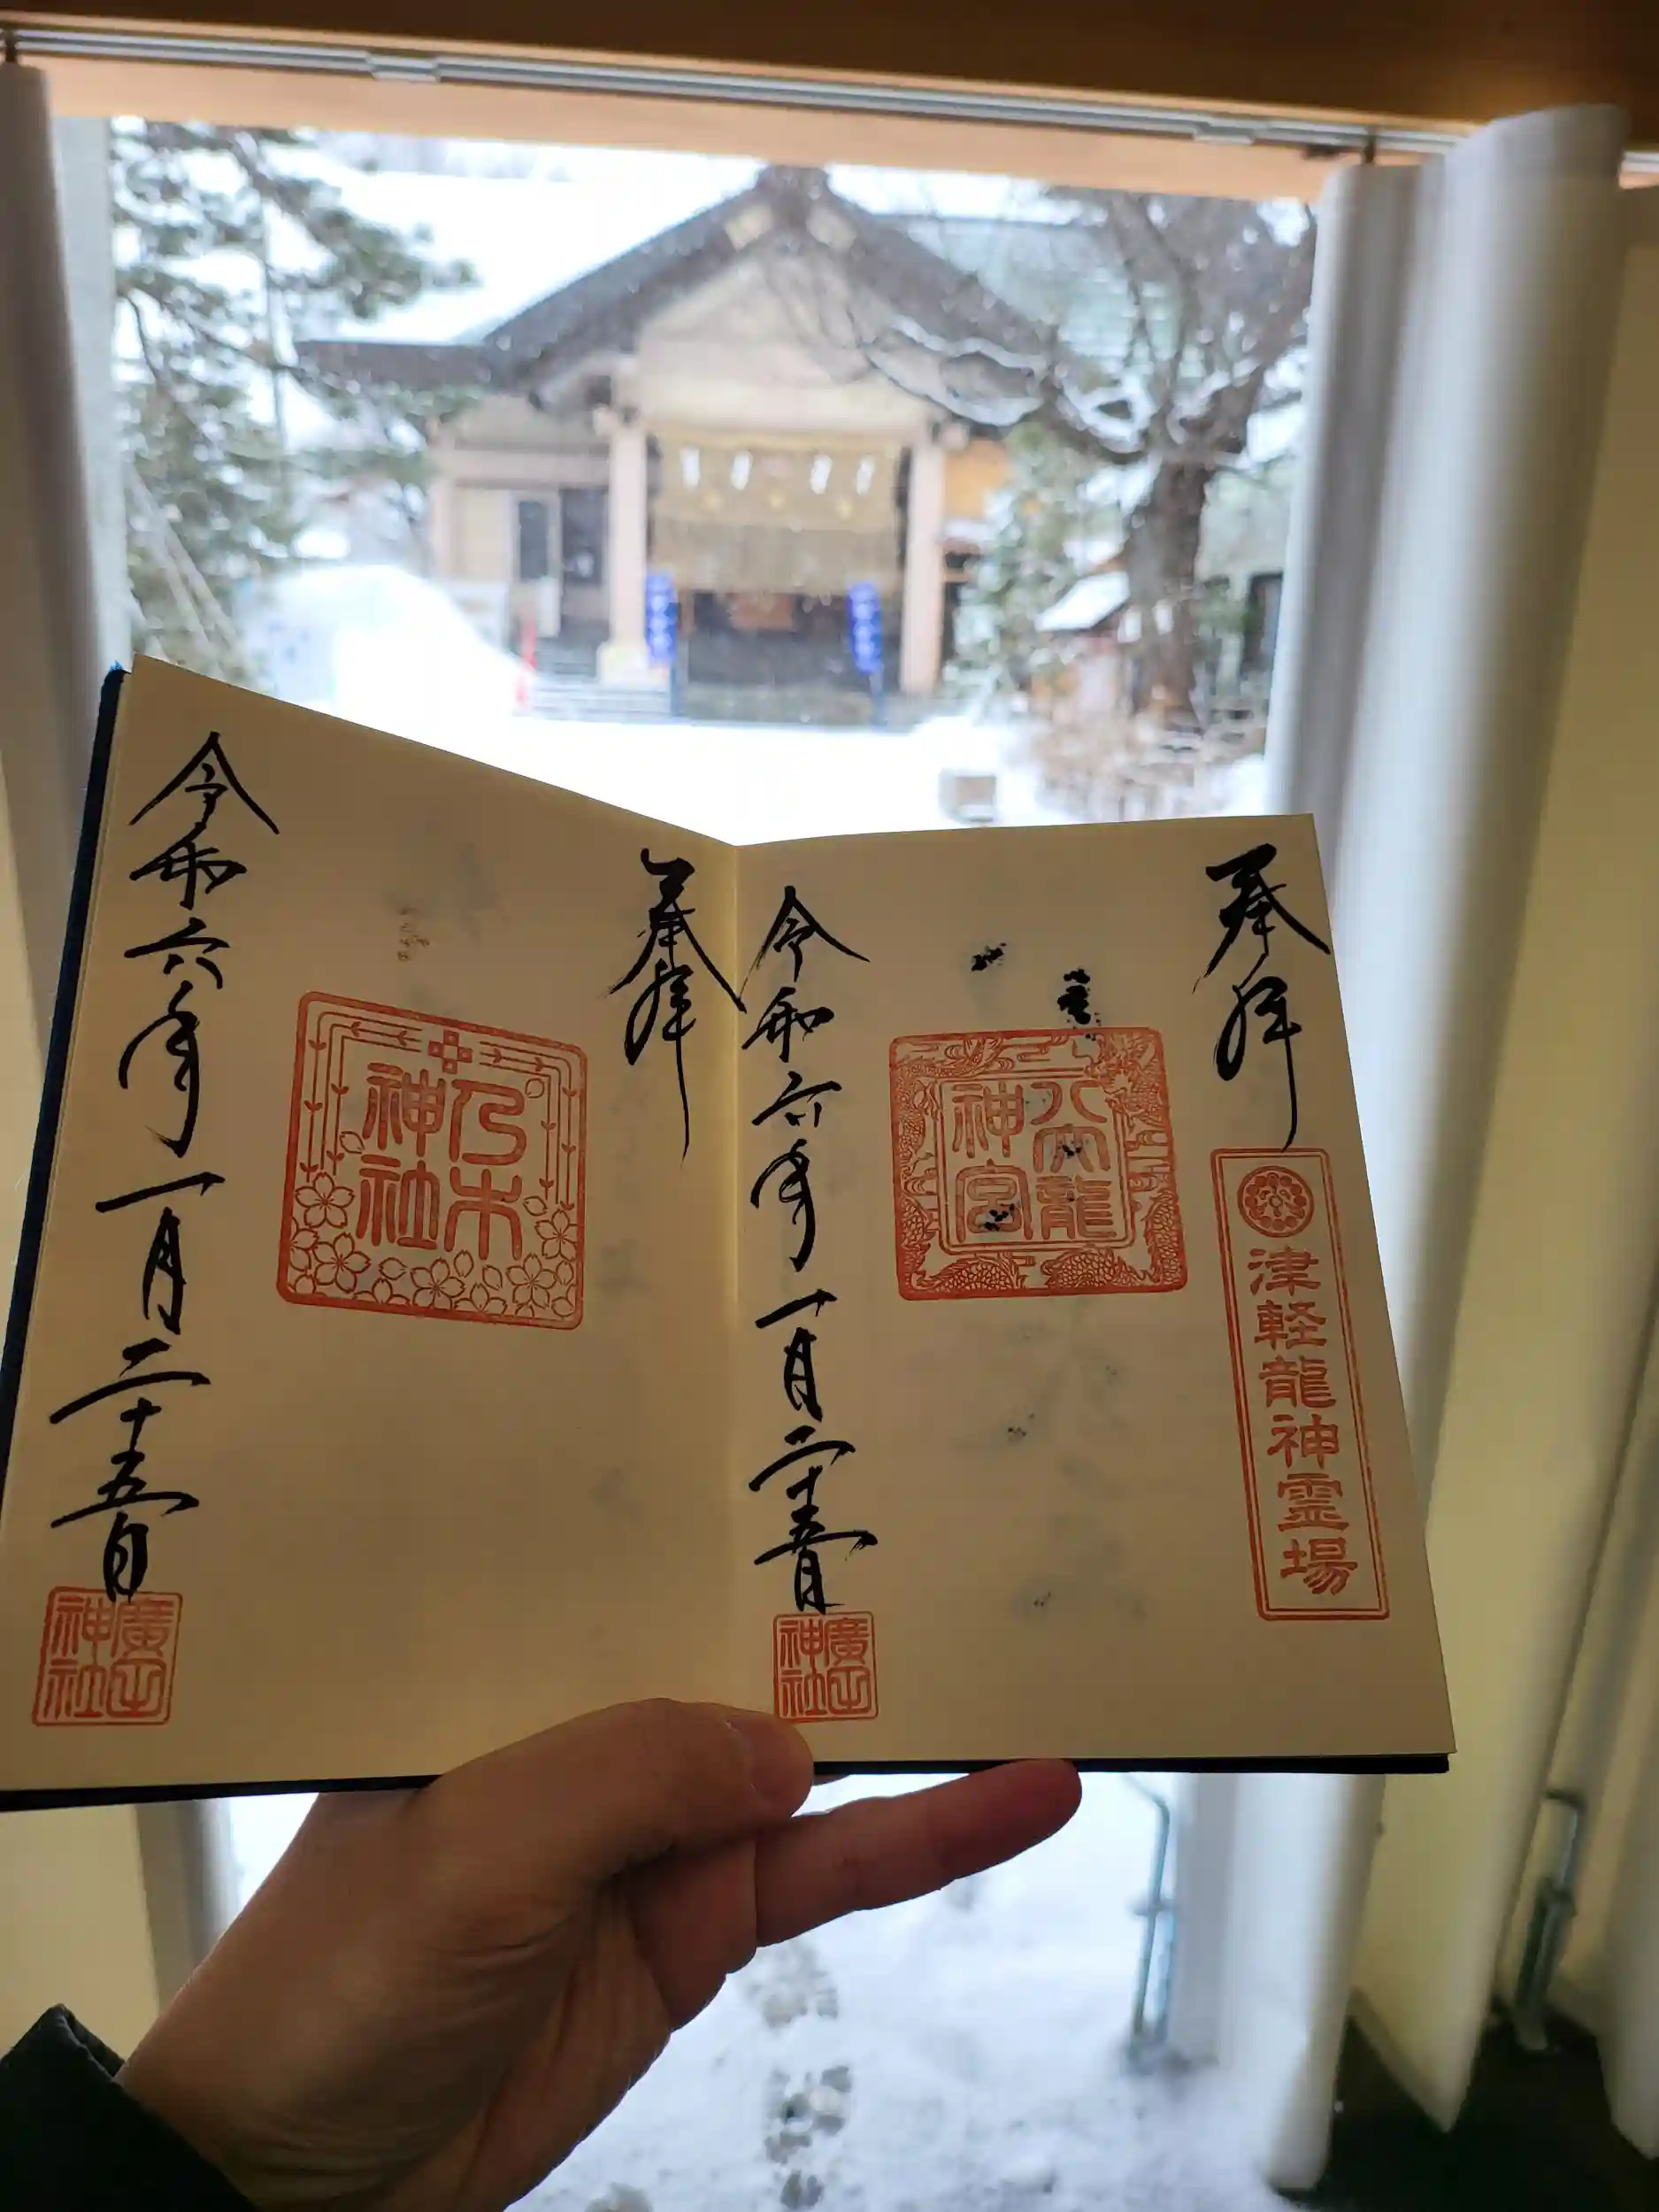 奉拝
津軽龍神霊場
八大龍
神宮
令和六年一月二十五日
廣田
神社
奉拝
乃木
神社
令和六年一月二十五日
廣田
神社